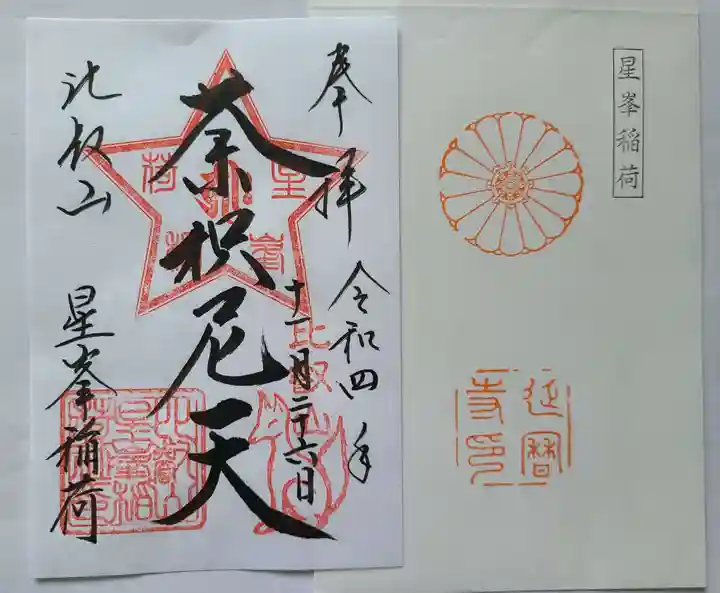 星峯稲荷
延暦
寺印
奉拝
令和四年
十一月二十六日
荼枳尼天
比叡山
星峯稲荷
星
峯
稲
荷
比叡